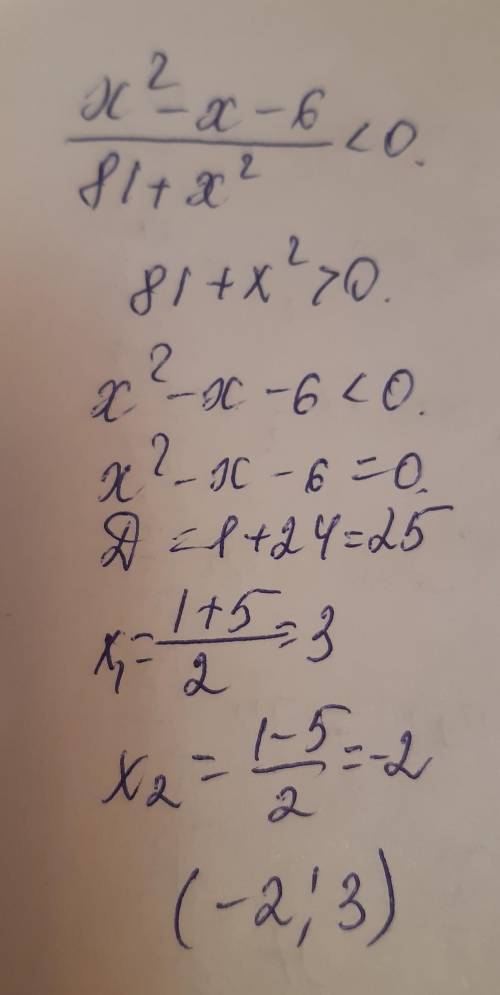 x² - x - 6
81 + x² < 0.
81 + x² > 0.
x² - x - 6 < 0.
x² - x - 6 = 0.
D = 1 + 24 = 25
x₁ = (1 + 5)/2 = 3
x₂ = (1 - 5)/2 = -2
(-2; 3)